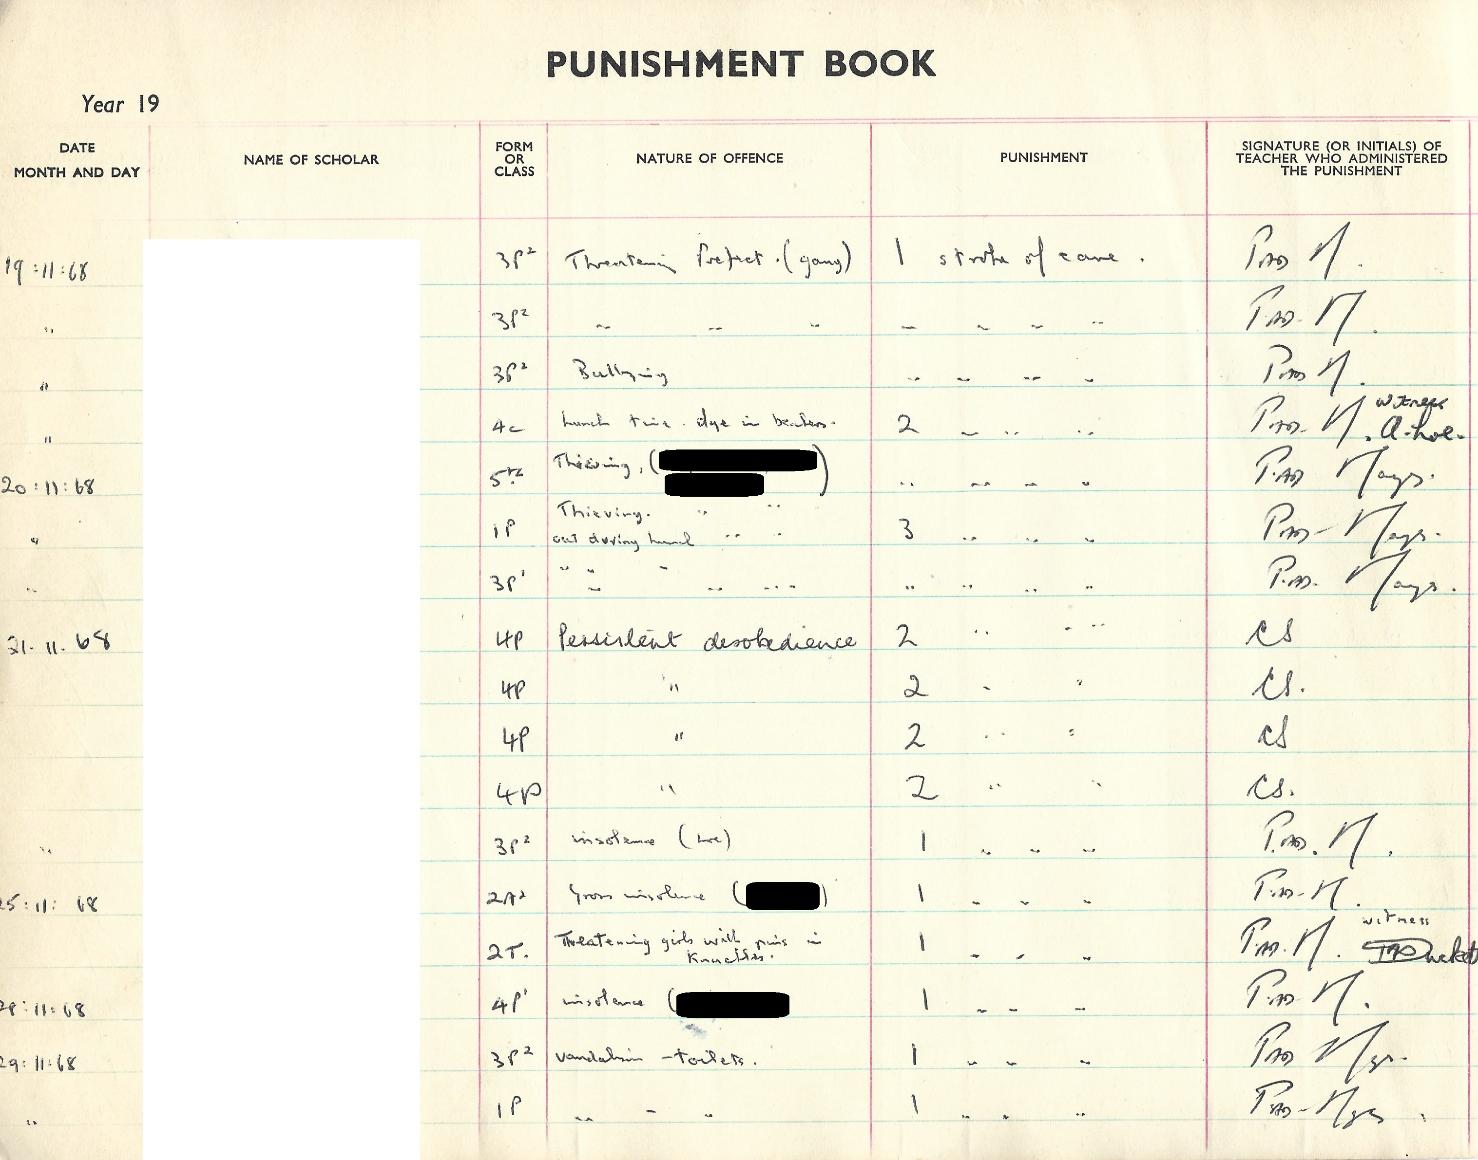 PUNISHMENT BOOK
Year 19
DATE MONTH AND DAY NAME OF SCHOLAR FORM OR CLASS NATURE OF OFFENCE PUNISHMENT SIGNATURE (OR INITIALS) OF TEACHER WHO ADMINISTERED THE PUNISHMENT
19:11:68 3P² Threatening Prefect. (gang) 1 stroke of cane.
" 3P² " " " " " " "
" 3P² Bullying " " " "
" 4c lunch time. dye in beakers. 2 " " " witness
20:11:68 5 Thieving, ( ) " " " " Mays.
" 1P Thieving. " " out during lunch " " 3 " " " Mays.
" 3P¹ " " " " " " " " " " Mays.
21.11.68 4P Persistent desobedience 2 " " " CS
4P " 2 " " CS.
4P " 2 " " CS
4P " 2 " " CS.
" 3P² insolence 1 " " "
25:11:68 2A² Gross insolence ( ) 1 " " "
2T. Threatening girls with pins in knuckles. 1 " " " witness
:11:68 4P¹ insolence ( 1 " " "
29:11:68 3P² vandalism - toilets. 1 " " "
" 1P " " " 1 " " "